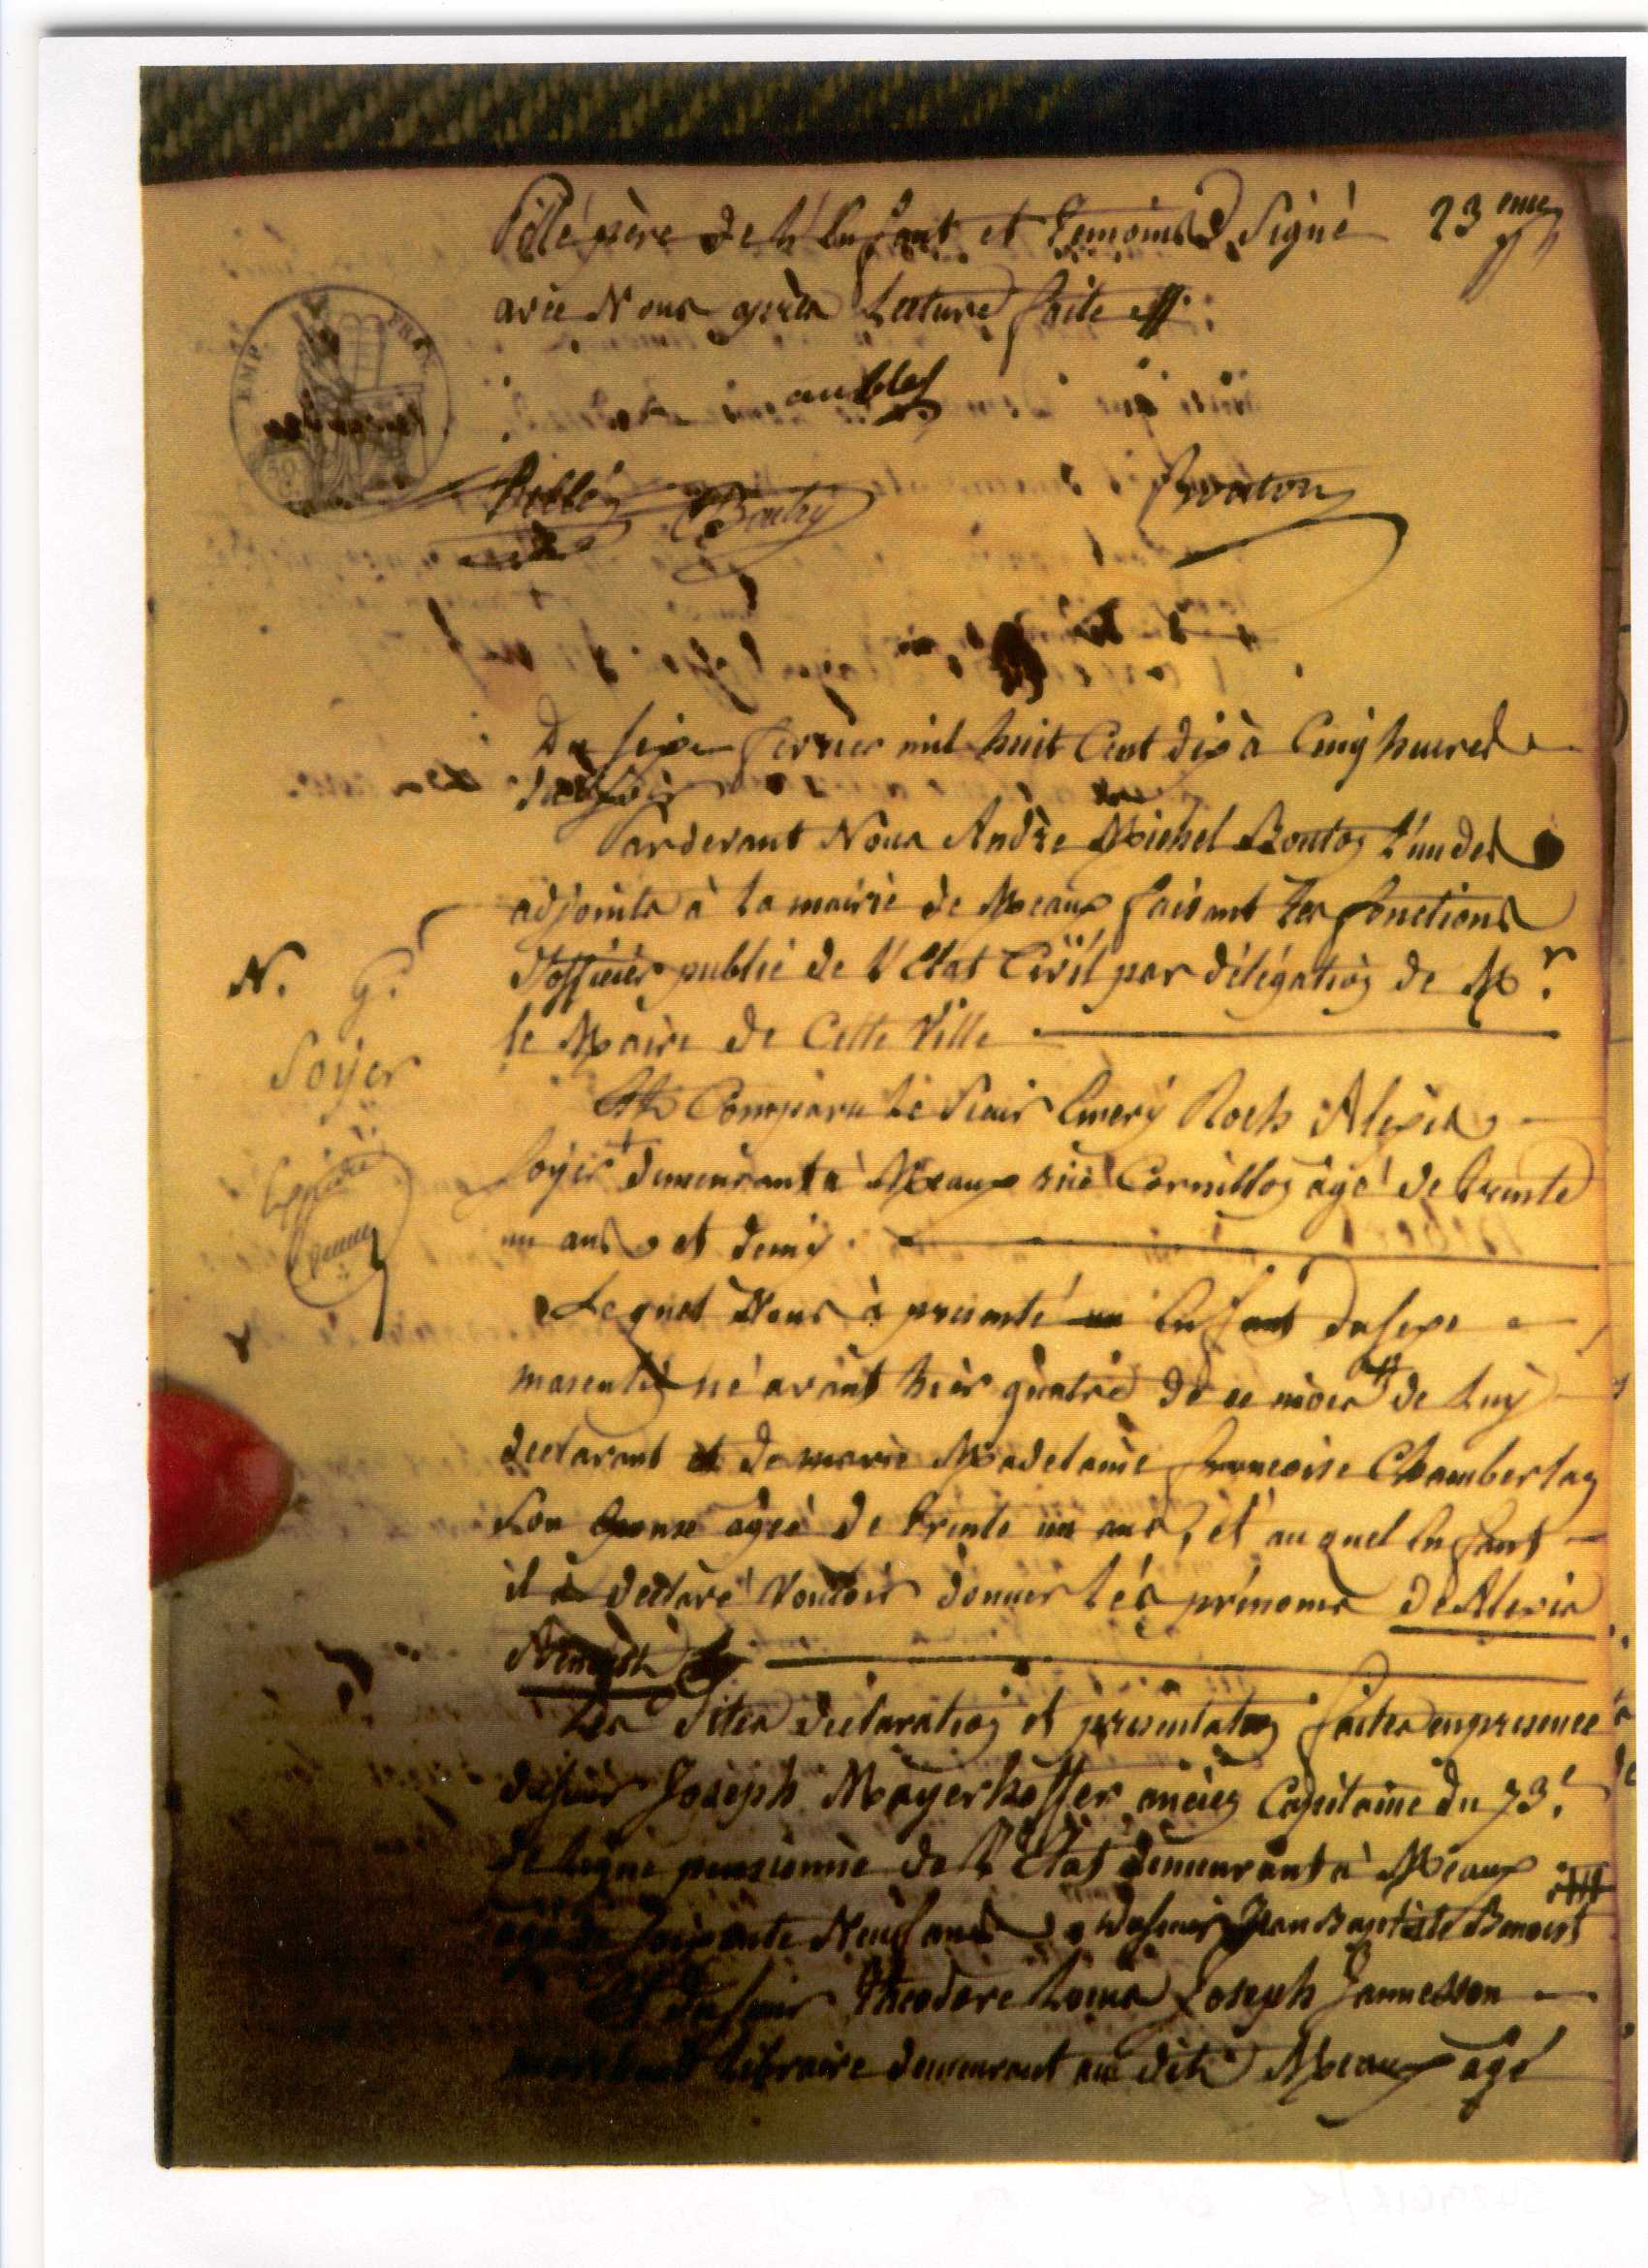 Pillé père de l'Enfant et temoins Signé 23 eme
avec Nous après Lecture faite
EMP. FRAN.
Boutry Bouton
Du six fevrier mil huit Cent dix à Cinq heures
du soir
Pardevant Nous André Michel Bouton L'un des
adjoints à la mairie de Meaux faisant les fonctions
d'officier public de l'Etat Civil par délégation de Mr.
le Maire de Cette Ville
N. G.
Soyer
Est Comparu le Sieur Emery Roch Alexis
Soyer demeurant à Meaux rue Cornillon agé de trente
un ans et demi
Le quel Nous à presenté un Enfant du sexe
masculin né avant hier quatre de ce mois de luy
declarant et de marie Madelaine francoise Chamberlan
Son Epouse agée de trente un ans, et au quel Enfant
il à declaré Vouloir donner les prénoms de Alexis
Benoist
Les dites declaration et presentation faites en presence
du sieur Joseph Mayerhoffer ancien Capitaine du 73e
de Ligne pensionné de l'Etat demeurant à Meaux
agé de soixante Neuf ans du sieur Jean Baptiste Benoist
Et du sieur Theodore Louis Joseph Jannesson
marchand Libraire demeurant au dit Meaux agé